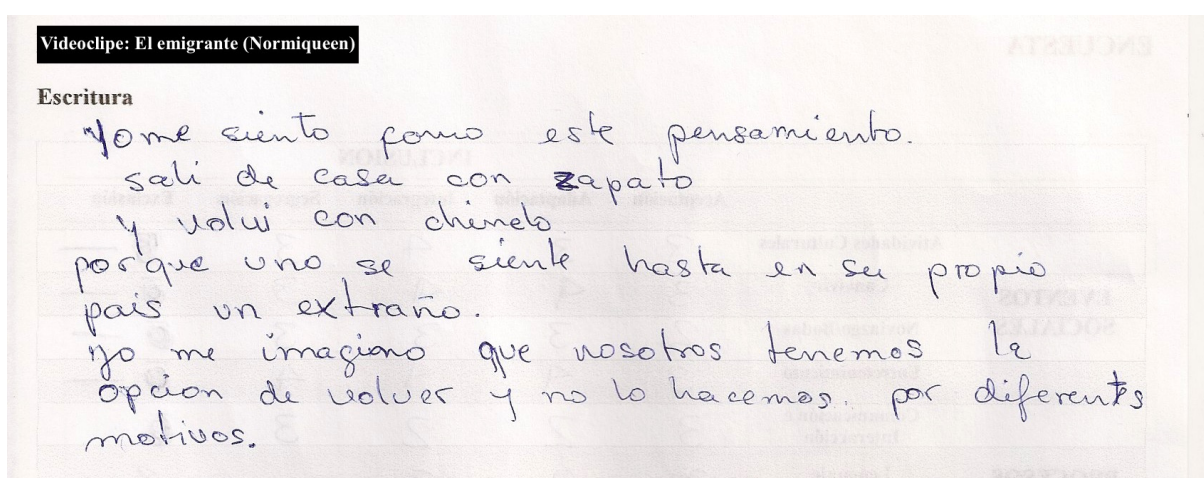 Videoclipe: El emigrante (Normiqueen)
Escritura
Yo me siento como este pensamiento.
sali de casa con zapato
y volvi con chinelo
porque uno se siente hasta en su propio
pais un extraño.
yo me imagino que nosotros tenemos la
opcion de volver y no lo hacemos. por diferentes
motivos.